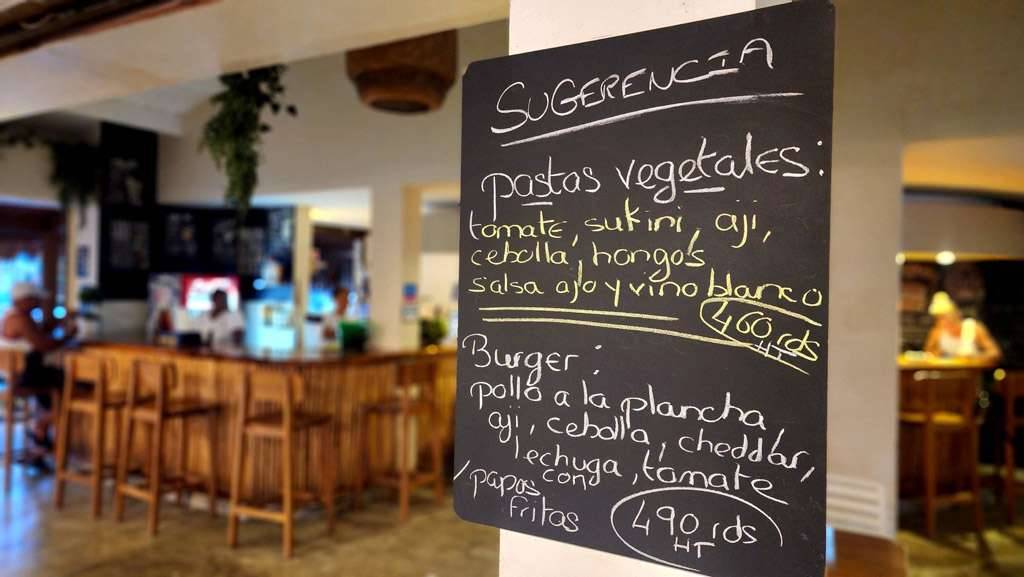 SUGERENCIA
pastas vegetales:
tomate, sukini, aji,
cebolla, hongos
salsa ajo y vino blanco
460 rds
HT
Burger:
pollo a la plancha,
aji, cebolla, cheddar,
lechuga, tomate
/papas con
fritas
490 rds
HT